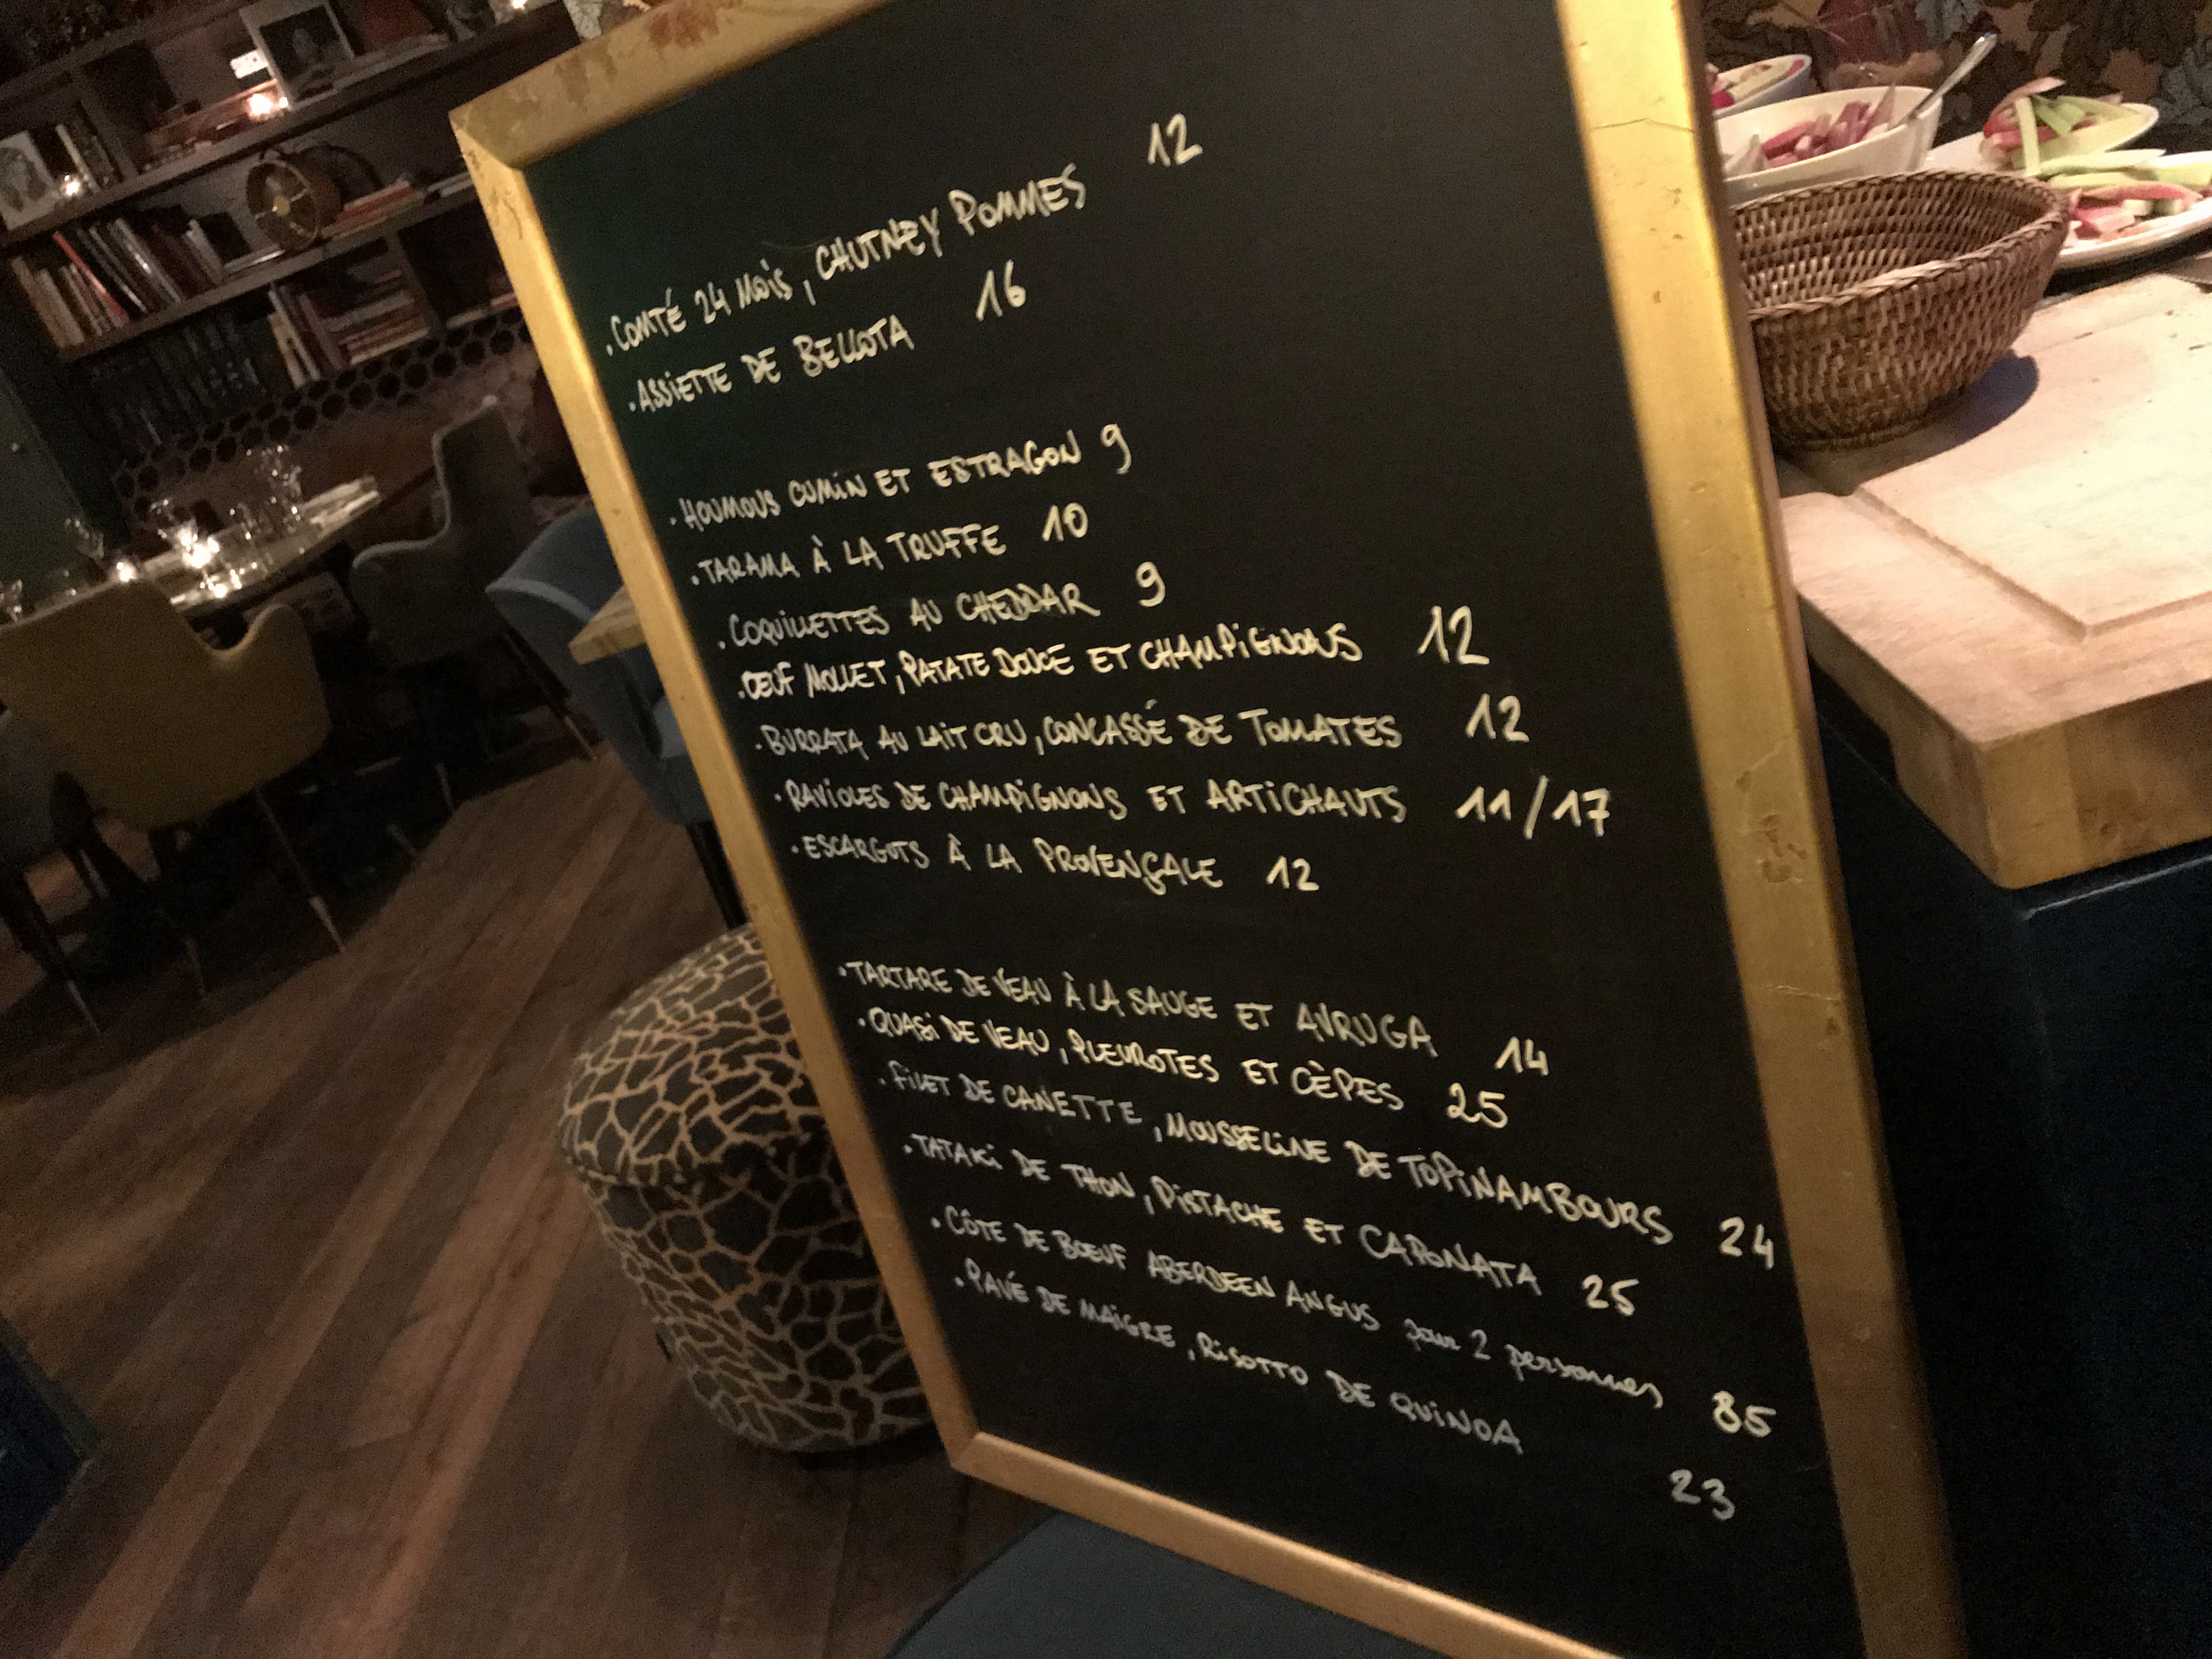 . COMTÉ 24 MOIS, CHUTNEY POMMES 12
. ASSIETTE DE BELLOTA 16
. HOUMOUS CUMIN ET ESTRAGON 9
. TARAMA À LA TRUFFE 10
. COQUILLETTES AU CHEDDAR 9
. ŒUF MOLLET, PATATE DOUCE ET CHAMPIGNONS 12
. BURRATA AU LAIT CRU, CONCASSÉ DE TOMATES 12
. RAVIOLES DE CHAMPIGNONS ET ARTICHAUTS 11/17
. ESCARGOTS À LA PROVENÇALE 12
. TARTARE DE VEAU À LA SAUGE ET AVRUGA 14
. QUASI DE VEAU, PLEUROTES ET CÈPES 25
. FILET DE CANETTE, MOUSSELINE DE TOPINAMBOURS 24
. TATAKI DE THON, PISTACHE ET CAPONATA 25
. CÔTE DE BŒUF ABERDEEN ANGUS pour 2 personnes 85
. PAVÉ DE MAIGRE, RISOTTO DE QUINOA 23